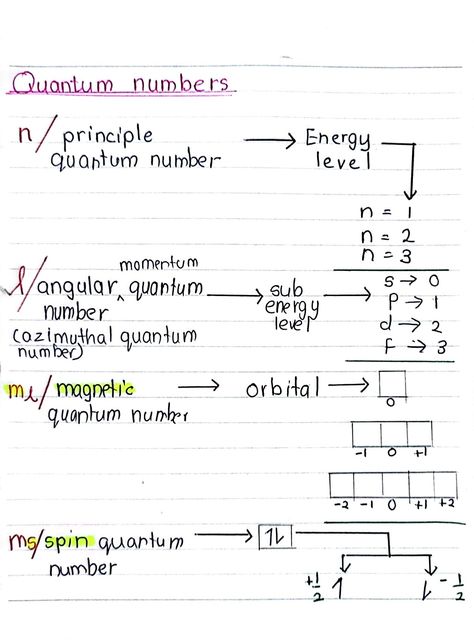 Quantum numbers
n/ principle → Energy
quantum number level
n = 1
n = 2
n = 3
momentum
l/angular ^ quantum → sub → s → 0
number energy p → 1
(azimuthal quantum level d → 2
number) f → 3
ml/magnetic → orbital →
quantum number 0
-1 0 +1
-2 -1 0 +1 +2
ms/spin quantum → 1L
number
+1/2 1 L -1/2